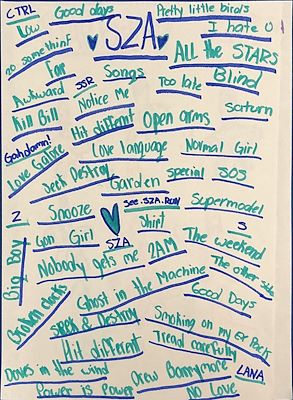 CTRL Good days Pretty little birds
Low SZA I hate U
20 something ALL the STARS
Far Songs Too late Blind
Awkward SSR Notice Me
Kill Bill Hit different Open arms Saturn
Gahdamn! Love language Normal Girl
Love Galore Seek & Destroy Garden special SOS
Z Snooze See.SZA.RUN Supermodel
Big Boy Gon Girl SZA Shirt S
Nobody gets me 2AM The weekend
The other side
Broken clocks Ghost in the Machine Good Days
Seek & Destroy Smoking on my Ex Pack
Hit different Tread carefully
Doves in the wind Drew Barrymore LANA
Power is Power No Love